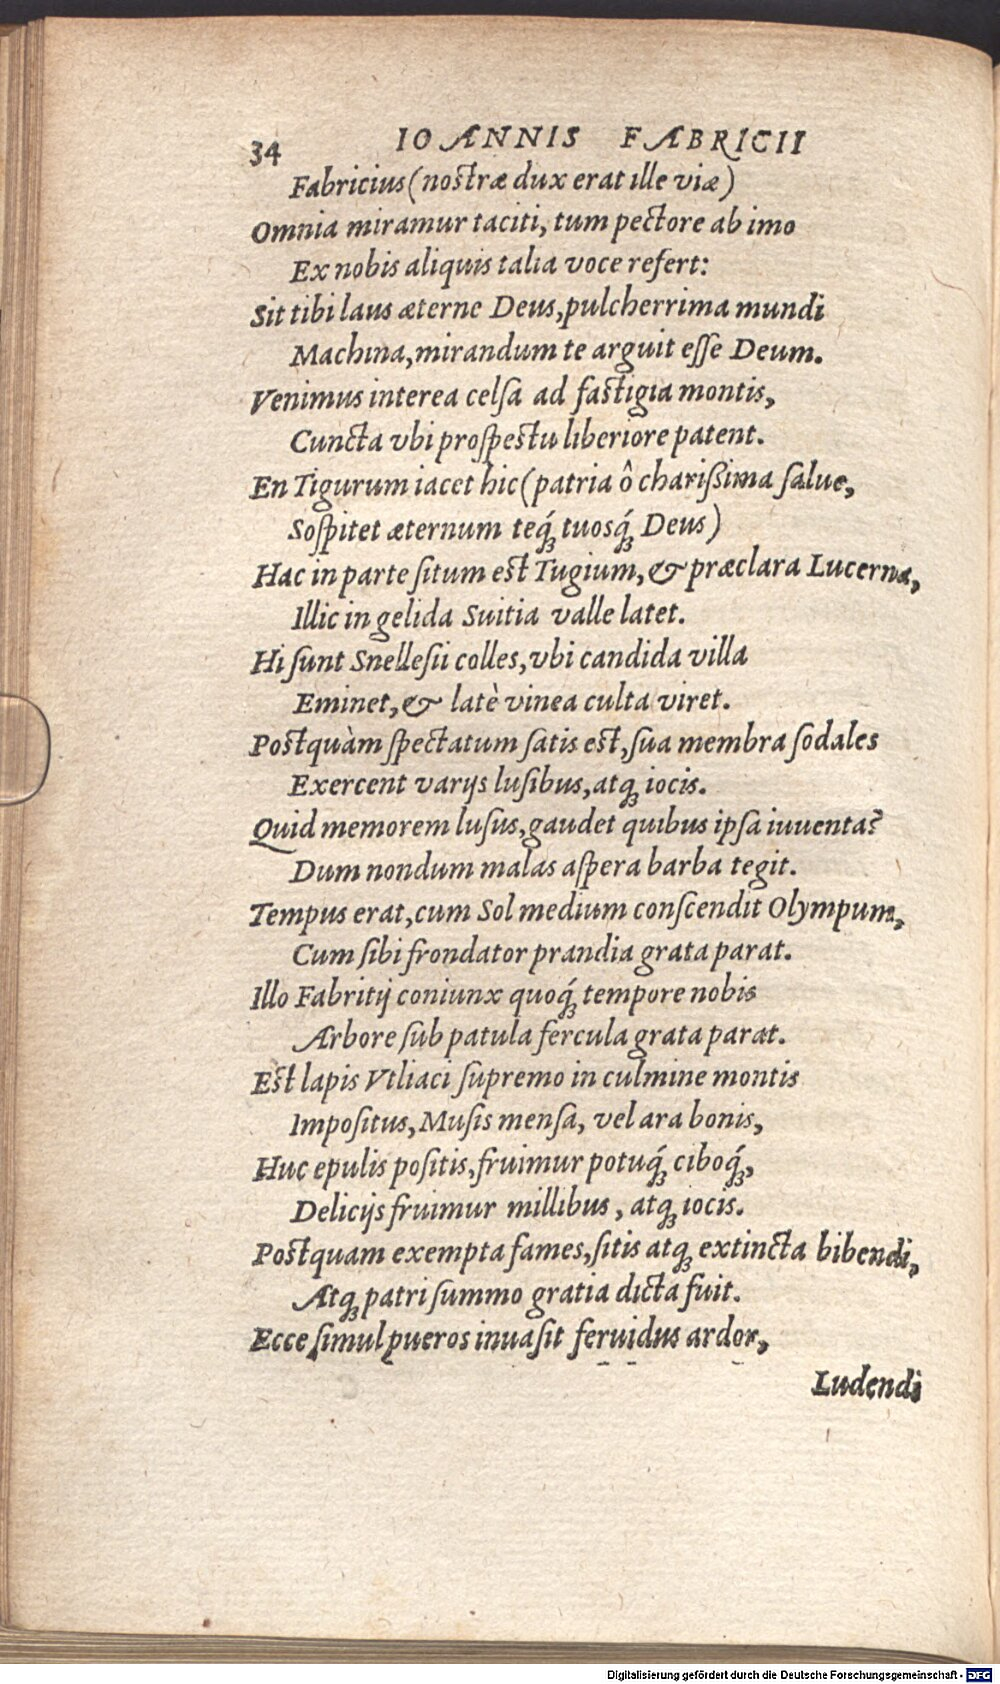 34 IOANNIS FABRICII
Fabricius (nostræ dux erat ille viæ)
Omnia miramur taciti, tum pectore ab imo
Ex nobis aliquis talia voce refert:
Sit tibi laus æterne Deus, pulcherrima mundi
Machina, mirandum te arguit eſſe Deum.
Venimus interea celſa ad faſtigia montis,
Cuncta vbi proſpestu liberiore patent.
En Tigurum iacet hic (patria ô chariſsima ſalue,
Soſpitet æternum teq́; tuosq́; Deus)
Hac in parte ſitum eſt Tugium, & præclara Lucerna,
Illic in gelida Suitia valle latet.
Hi ſunt Snelleſii colles, vbi candida villa
Eminet, & latè vinea culta viret.
Poſtquàm ſpectatum ſatis eſt, ſua membra ſodales
Exercent varijs luſibus, atq; iocis.
Quid memorem luſus, gaudet quibus ipſa iuuenta?
Dum nondum malas aſpera barba tegit.
Tempus erat, cum Sol medium conſcendit Olympum,
Cum ſibi frondator prandia grata parat.
Illo Fabritij coniunx quoq́; tempore nobis
Arbore ſub patula fercula grata parat.
Eſt lapis Vtliaci ſupremo in culmine montis
Impoſitus, Muſis menſa, vel ara bonis,
Huc epulis poſitis, fruimur potuq́; ciboq́;,
Delicijs fruimur millibus, atq; iocis.
Poſtquam exempta fames, ſitis atq; extincta bibendi,
Atq; patri ſummo gratia dicta fuit.
Ecce ſimul pueros inuaſit feruidus ardor,
Ludendi
Digitalisierung gefördert durch die Deutsche Forschungsgemeinschaft - DFG